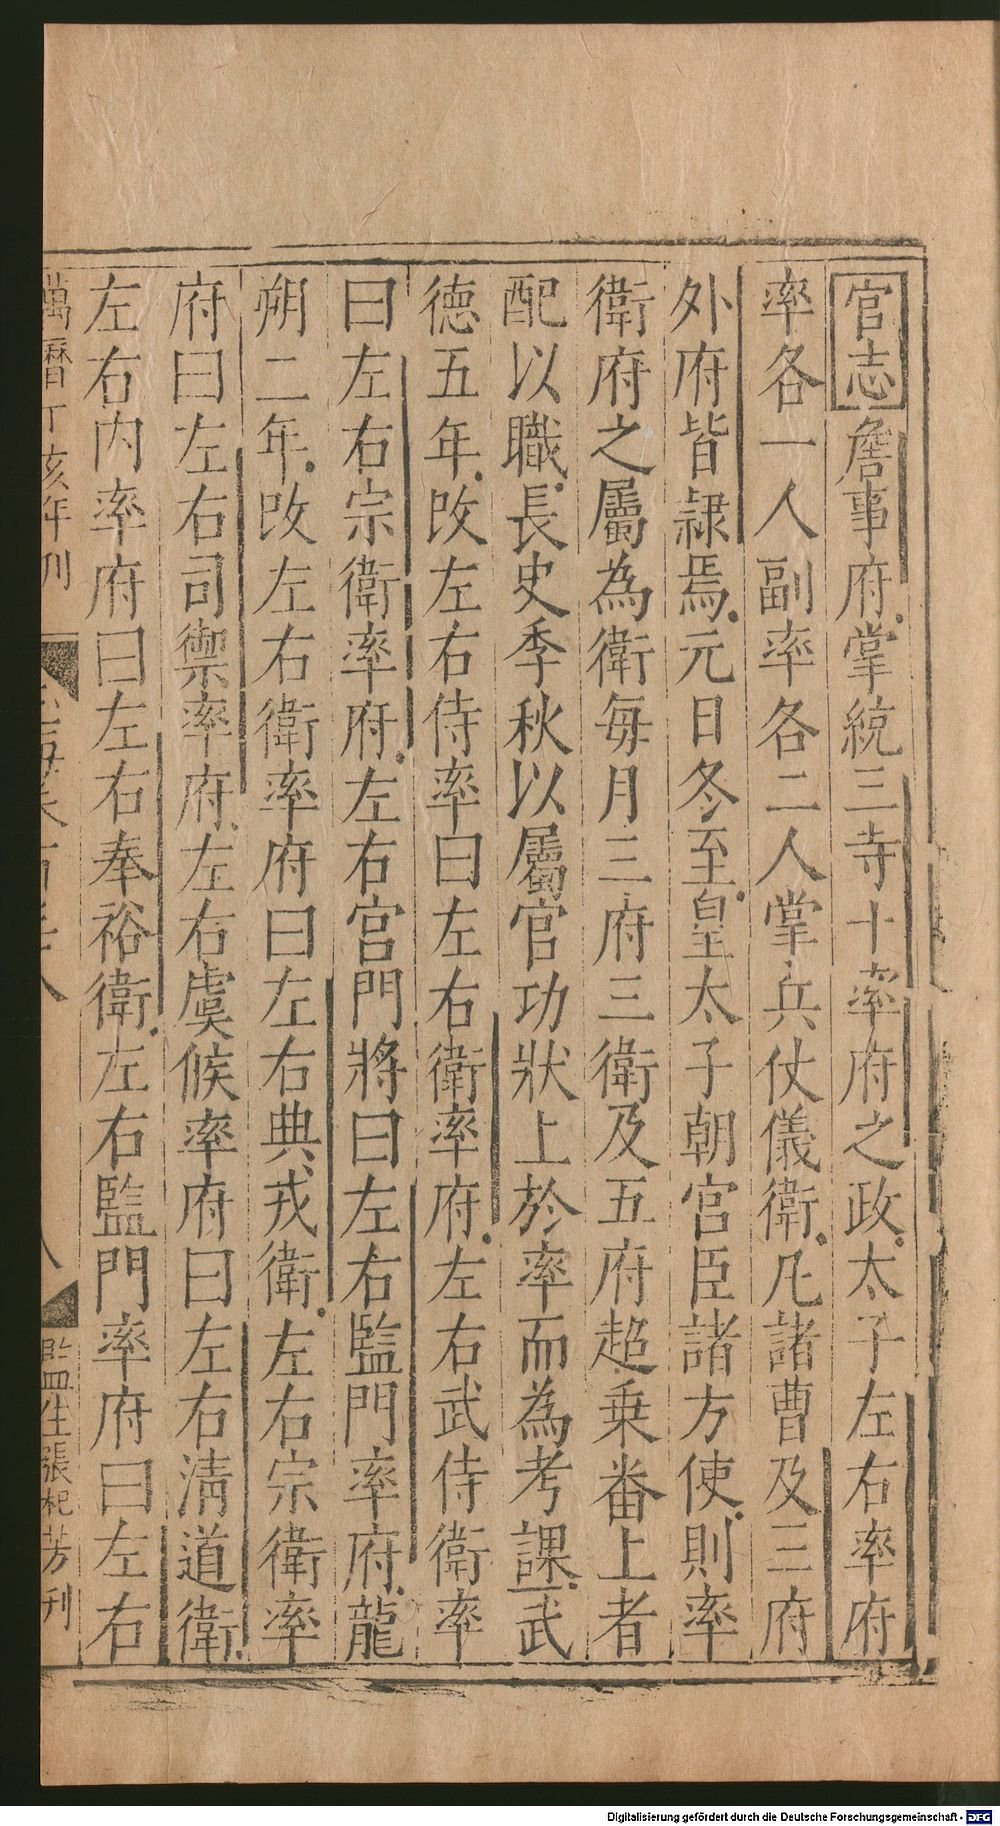 官志詹事府掌統三寺十率府之政太子左右率府
率各一人副率各二人掌兵仗儀衛凡諸曹及三府
外府皆隸焉元日冬至皇太子朝宮臣諸方使則率
衛府之屬為衛每月三府三衛及五府超乗番上者
配以職長史季秋以屬官功狀上於率而為考課武
德五年改左右侍率曰左右衛率府左右武侍衛率
曰左右宗衛率府左右宮門將曰左右監門率府龍
朔二年改左右衛率府曰左右典戎衛左右宗衛率
府曰左右司禦率府左右虞候率府曰左右清道衛
左右内率府曰左右奉裕衛左右監門率府曰左右
萬曆丁亥年刊
八
監生張杞芳刊
Digitalisierung gefördert durch die Deutsche Forschungsgemeinschaft - DFG